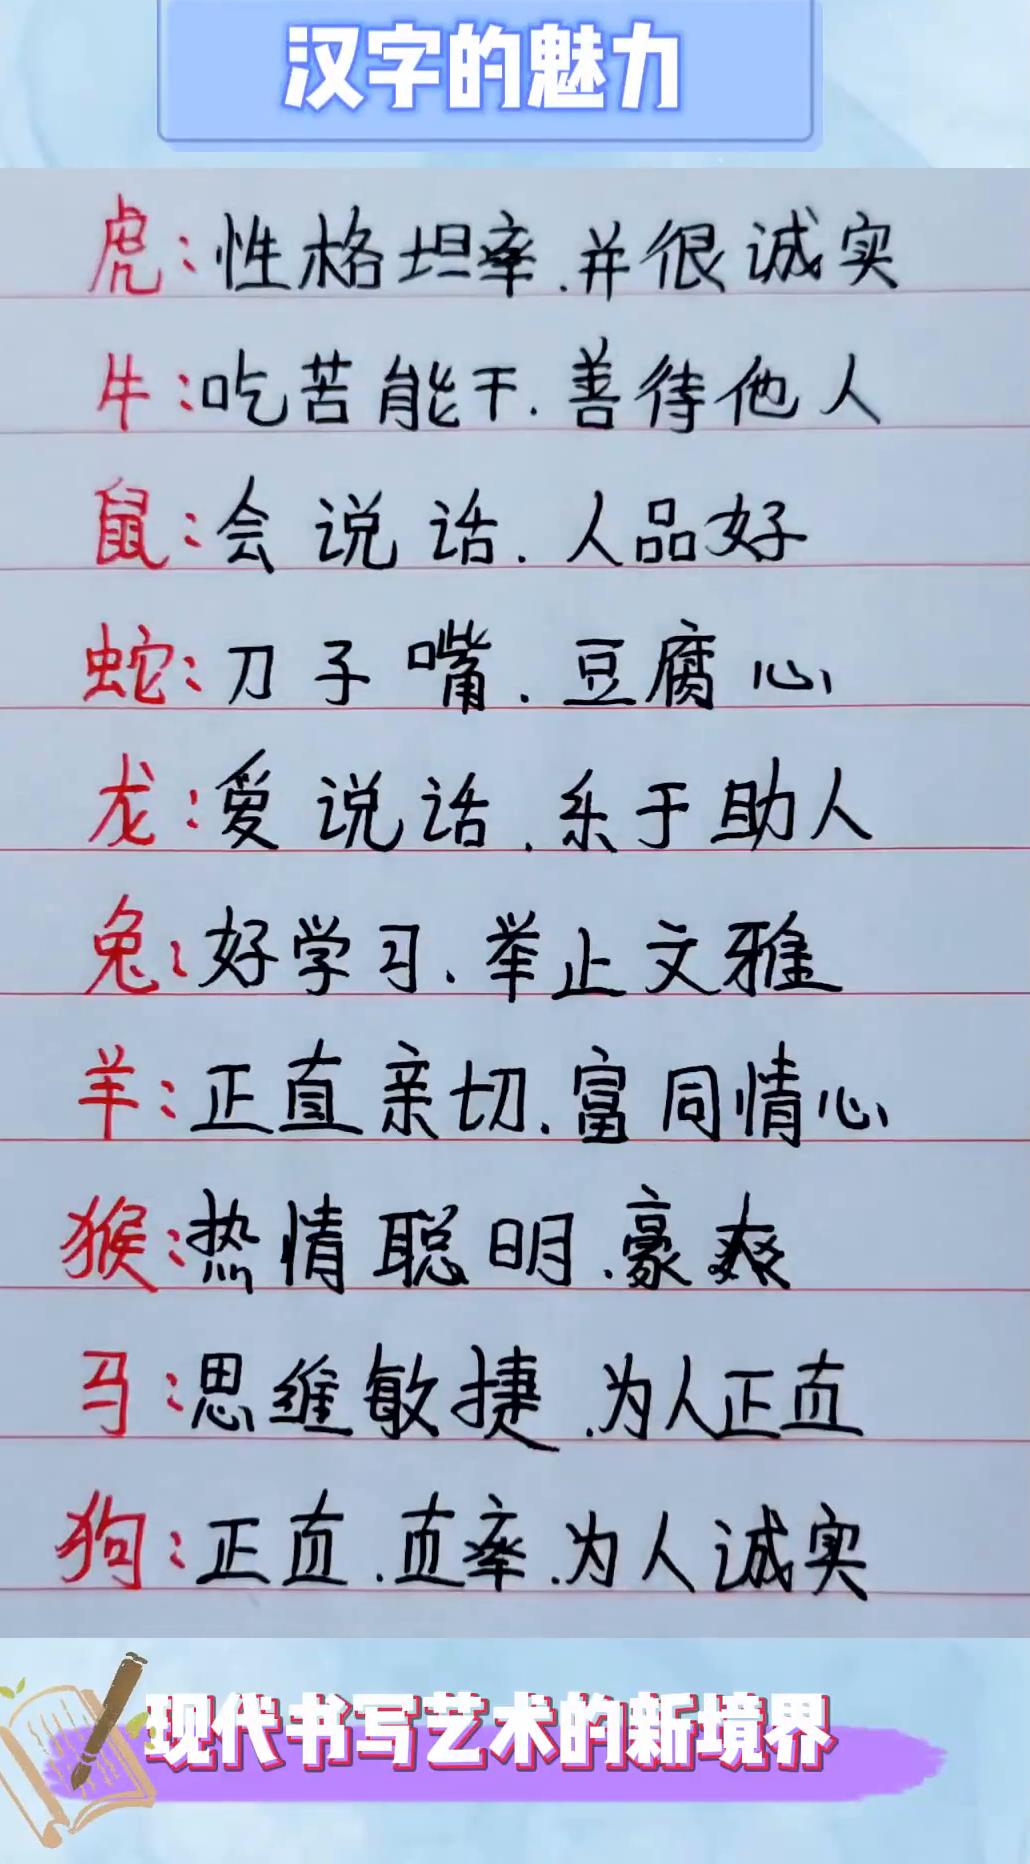 汉字的魅力
虎:性格坦率.并很诚实
牛:吃苦能干.善待他人
鼠:会说话.人品好
蛇:刀子嘴.豆腐心
龙:爱说话.乐于助人
兔:好学习.举止文雅
羊:正直亲切.富同情心
猴:热情聪明.豪爽
马:思维敏捷.为人正直
狗:正直.直率.为人诚实
现代书写艺术的新境界